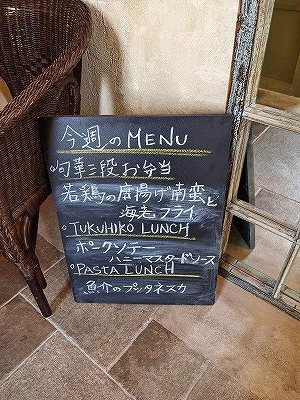 今週のMENU
○旬華三段お弁当
若鶏の唐揚げ南蛮と
海老フライ
○TUKUHIKO LUNCH
ポークソテー
ハニーマスタードソース
○PASTA LUNCH
魚介のプッタネスカ